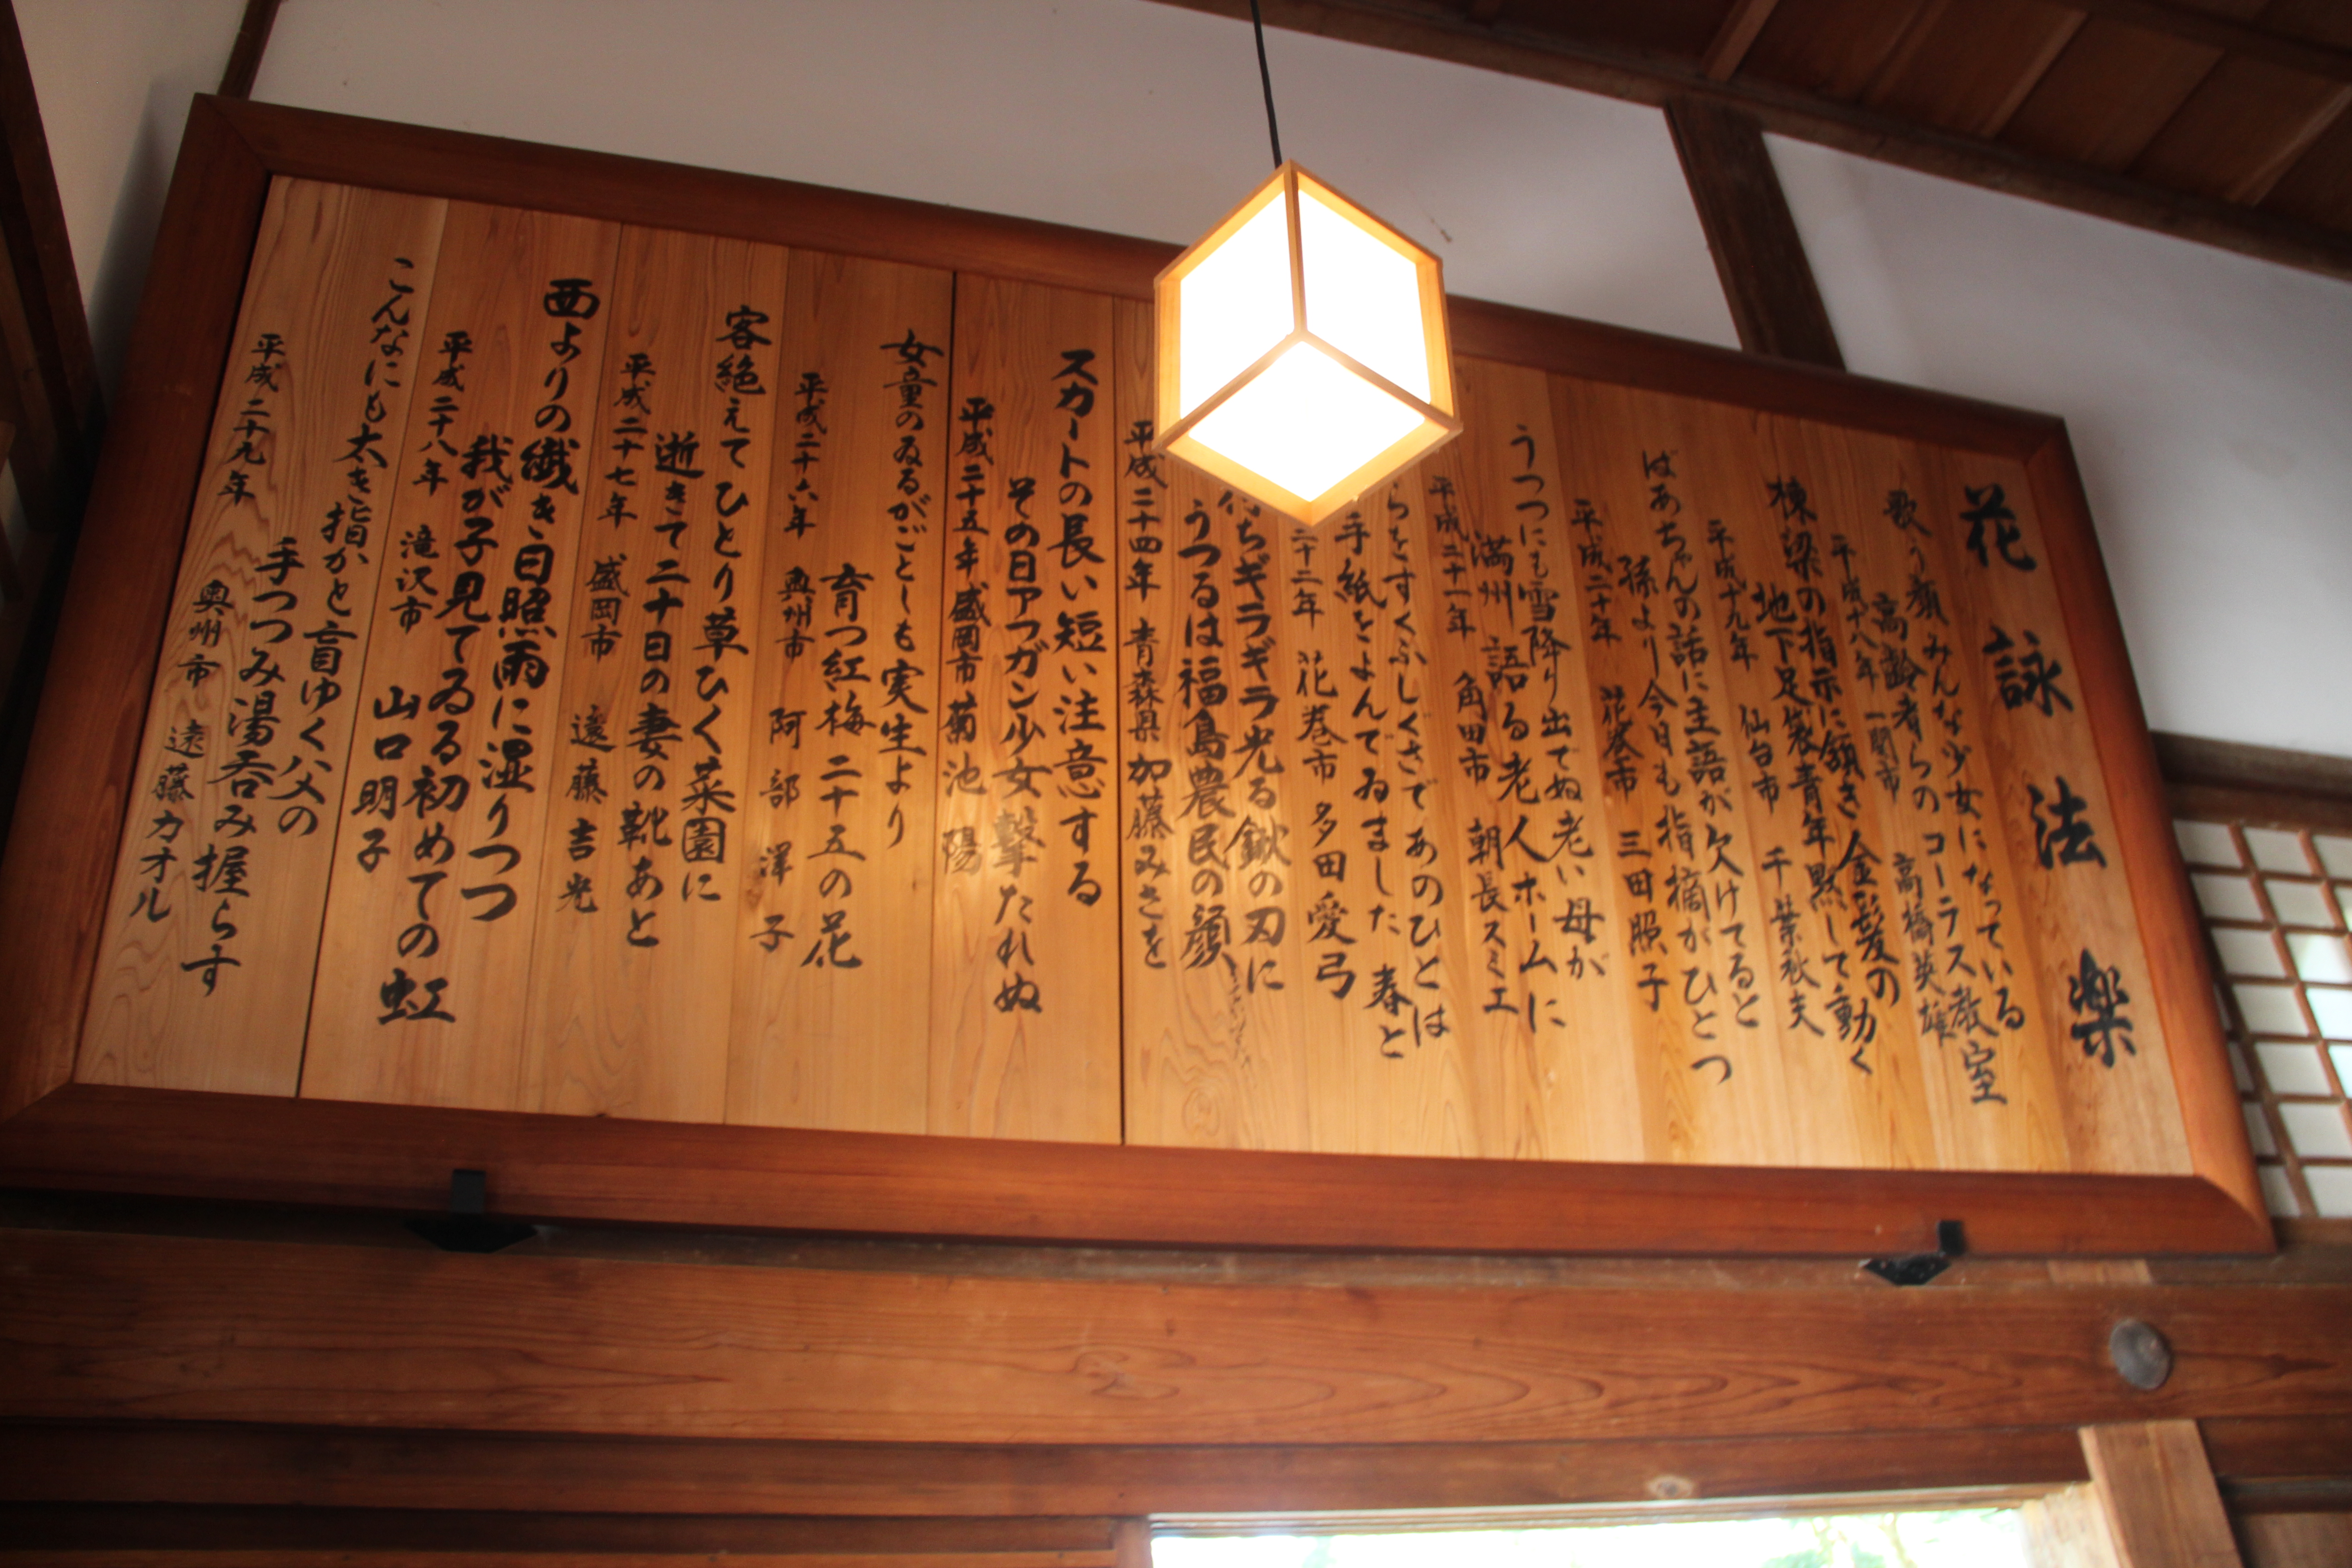 花詠法楽
歌う顔みんな少女になっている
高齢者らのコーラス教室
平成十八年 一関市 高橋英雄
棟梁の指示に頷き金髪の
地下足袋青年黙して動く
平成十九年 仙台市 千葉秋夫
ばあちゃんの話に主語が欠けてると
孫より今日も指摘がひとつ
平成二十年 花巻市 三田照子
うつつにも雪降り出でぬ老い母が
満州語る老人ホームに
平成二十一年 角田市 朝長スミエ
らをすくふしぐさであのひとは
手紙をよんでゐました 春と
二十二年 花巻市 多田愛弓
ちギラギラ光る鍬の刃に
うつるは福島農民の顔
平成二十四年 青森県 加藤みさを
スカートの長い短い注意する
その日アフガン少女撃たれぬ
平成二十五年 盛岡市 菊池 陽
女童のゐるがごとしも実生より
育つ紅梅二十五の花
平成二十六年 奥州市 阿部 洋子
客絶えてひとり草ひく菜園に
逝きて二十日の妻の靴あと
平成二十七年 盛岡市 遠藤吉光
西よりの繊き日照雨に湿りつつ
我が子見てゐる初めての虹
平成二十八年 滝沢市 山口明子
こんなにも太き指かと盲ゆく父の
手つつみ湯呑み握らす
平成二十九年 奥州市 遠藤カオル